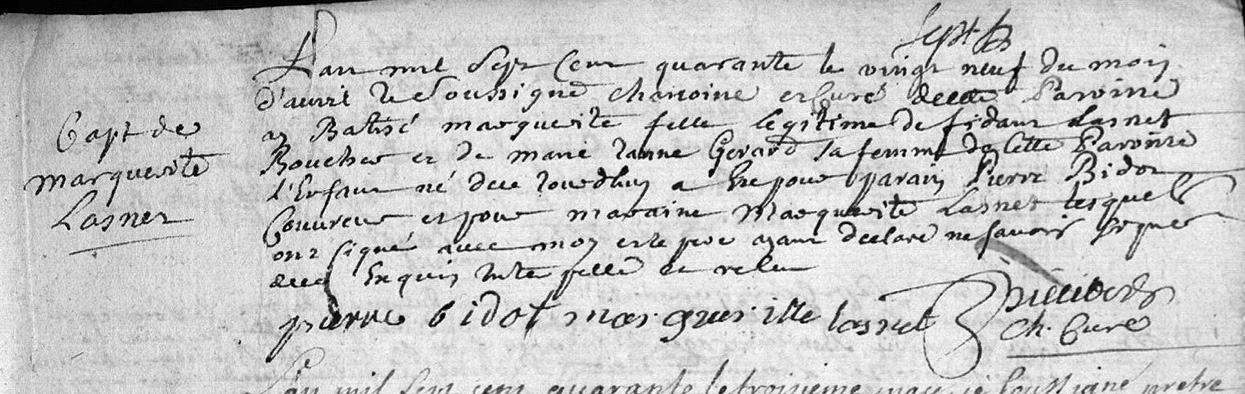 Sept b
Capt de
marguerite
Lasnet
L'an mil sept cent quarante le vingt neuf du mois
d'avril Je Soussigné chanoine et curé de cette Paroisse
ay Batisé marguerite fille legitime de fidam Lasnet
Boucher et de marie Janne Gerard sa femme de cette Paroisse
l'Enfant né de ce jourdhuy a Eté pour parain Pierre Bidot
Couvreur et pour maraine Marguerite Lasnet lesquels
ont signé avec moy et le pere ayant declaré ne savoir signer
de ce Enquis Interpellé et relu
pierre bidot margueritte lasnet
ch. Curé
L'an mil sept cent quarante le troisieme may je soussigné pretre